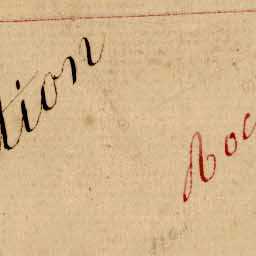 tion
Roc